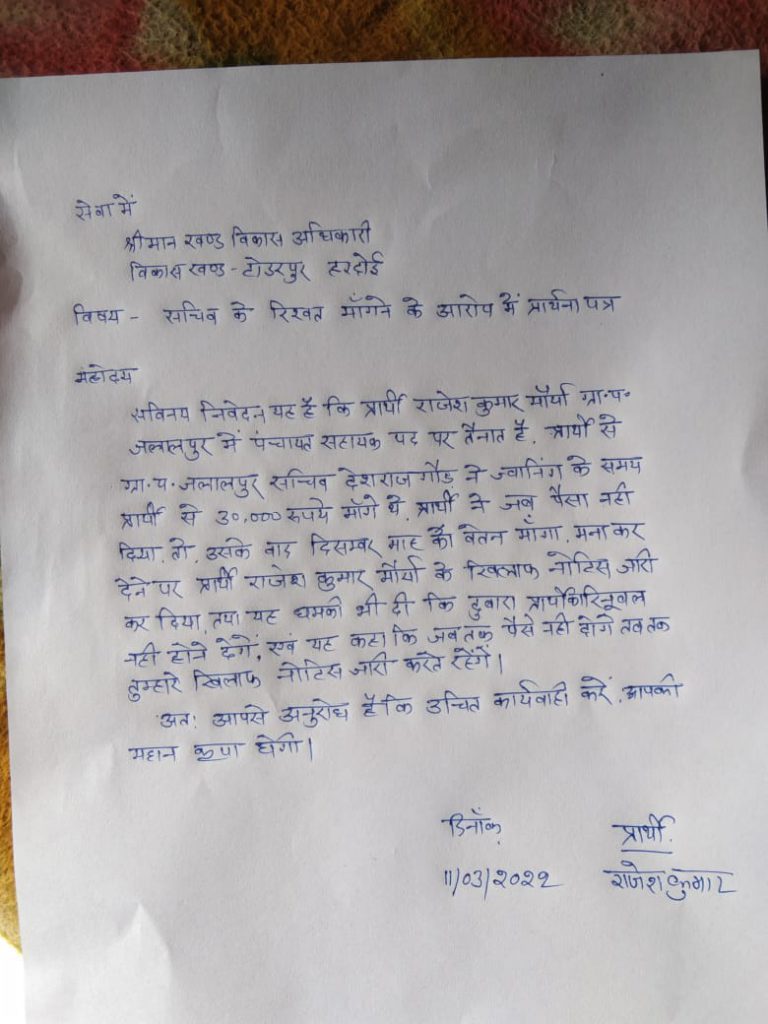 सेवा में
श्रीमान खण्ड विकास अधिकारी
विकास खण्ड - टोडरपुर हरदोई
विषय - सचिव के रिश्वत माँगने के आरोप में प्रार्थना पत्र
महोदय
सविनय निवेदन यह है कि प्रार्थी राजेश कुमार मौर्या ग्रा०प०
जलालपुर में पंचायत सहायक पद पर तैनात है, प्रार्थी से
ग्रा.प. जलालपुर सचिव देशराज गौड़ ने ज्वानिंग के समय
प्रार्थी से 30,000 रुपये माँगे थे, प्रार्थी ने जब पैसा नही
दिया, तो, उसके बाद दिसम्बर माह का वेतन माँगा, मना कर
देने पर प्रार्थी राजेश कुमार मौर्या के खिलाफ नोटिस जारी
कर दिया, तथा यह धमकी भी दी कि दुबारा रिनूवल
नही होने देगें, एवं यह कहा कि जब तक पैसे नही दोगे तब तक
तुम्हारे खिलाफ नोटिस जारी करते रहेंगें।
अतः आपसे अनुरोध है कि उचित कार्यवाही करें, आपकी
महान कृपा होगी।
दिनाँक, प्रार्थी.
11/03/2022 राजेश कुमार